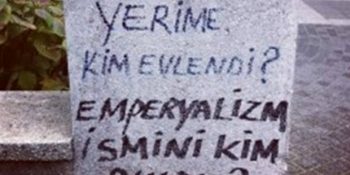 YERİME
KİM EVLENDİ?
EMPERYALİZM
İSMİNİ KİM